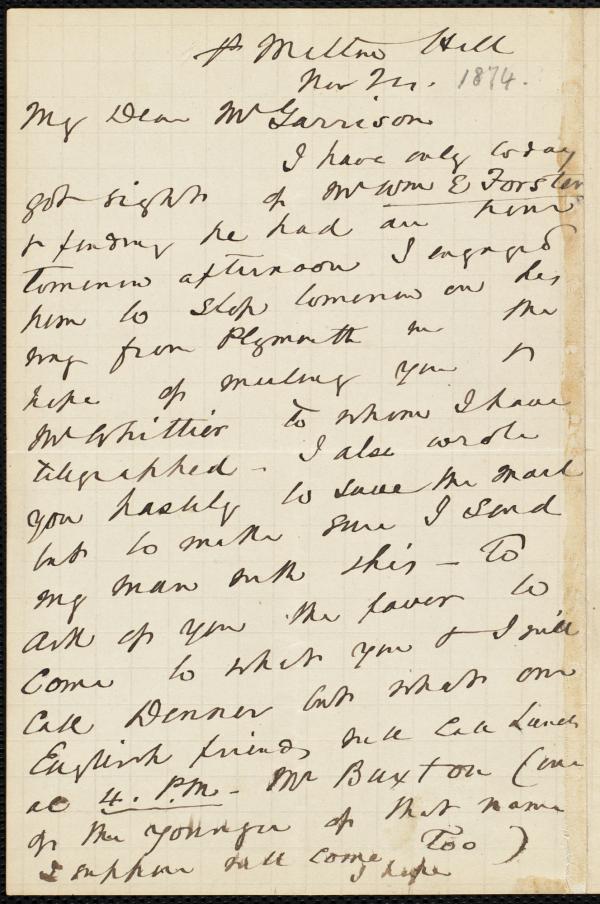 Milton Hill
Nov 1874.
My Dear Mr Garrison
I have only today
got sight of Mr Wm E Forster
& finding he had an hour
tomorrow afternoon I engaged
him to stop tomorrow on his
way from Plymouth in the
hope of meeting you &
Mr Whittier to whom I have
telegraphed - I also wrote
you hastily to save the mail
but to make sure I send
my man with this - To
ask of you the favor to
come to what you & I will
call Dinner but what our
English friends will call Lunch
at 4. P.M. - Mr Buxton (one
of the younger of that name
I suppose will come too)
I hope